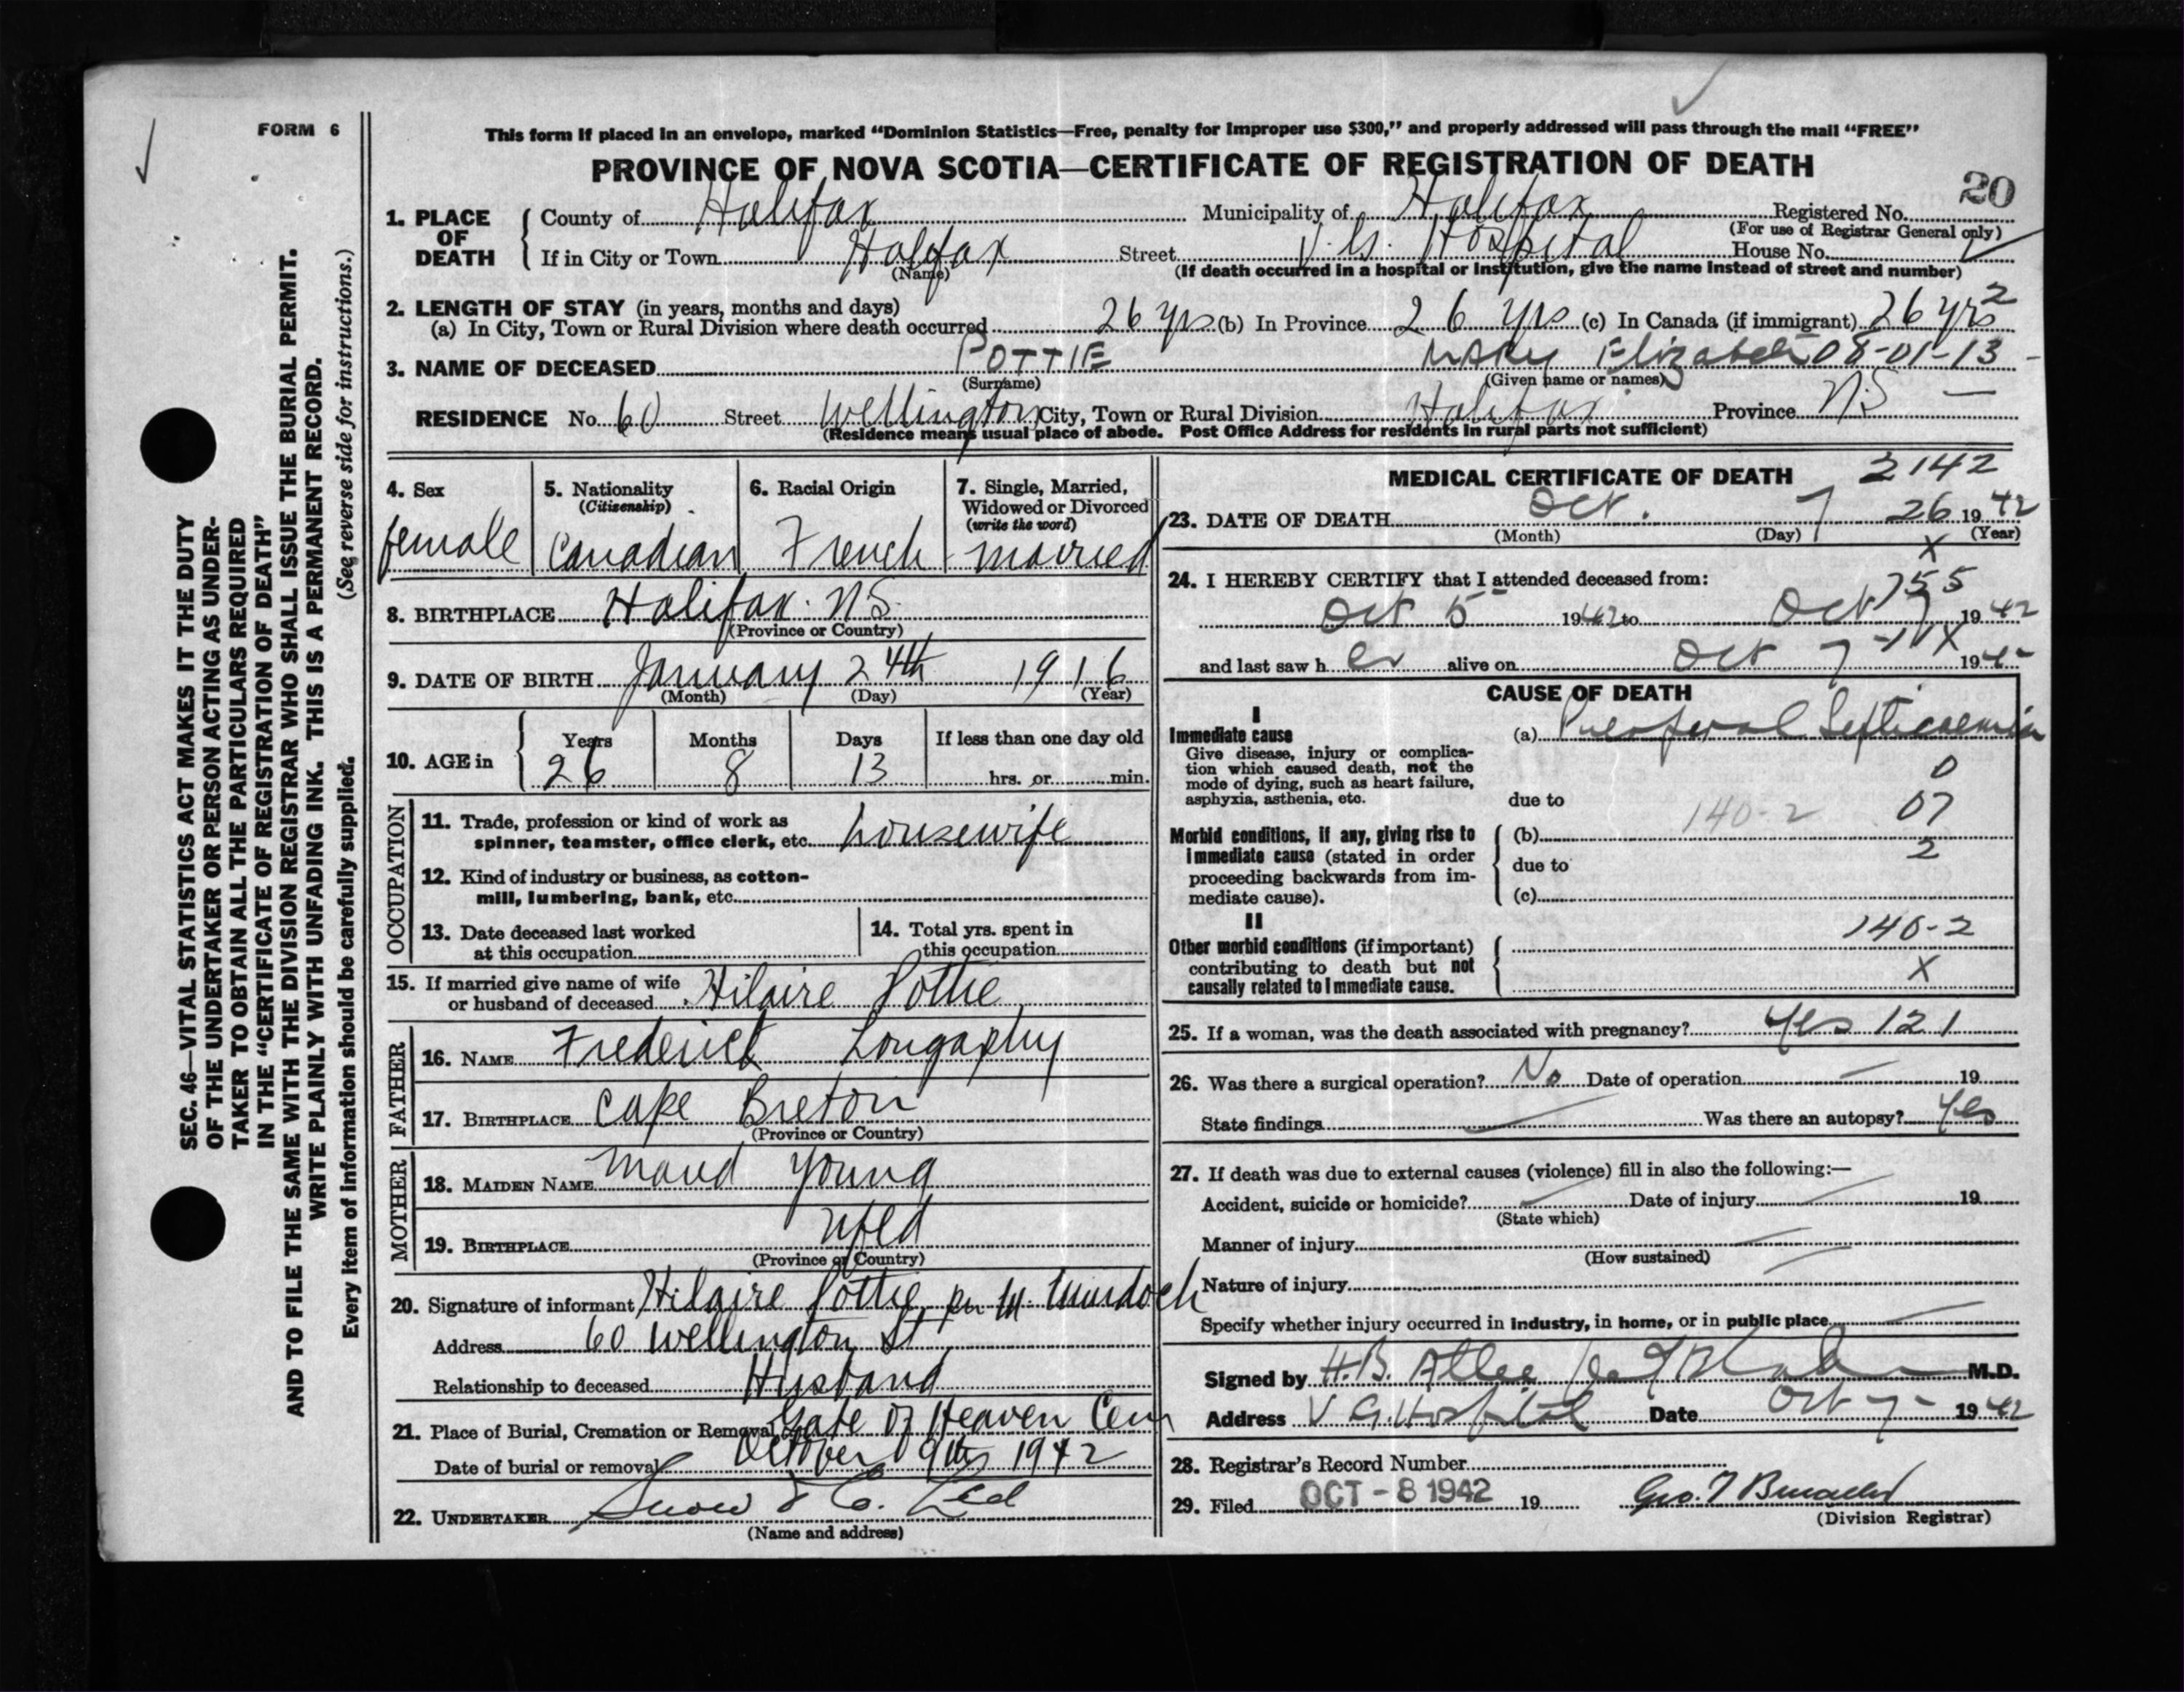 FORM 6
This form if placed in an envelope, marked “Dominion Statistics—Free, penalty for improper use $300,” and properly addressed will pass through the mail “FREE”
PROVINCE OF NOVA SCOTIA—CERTIFICATE OF REGISTRATION OF DEATH
20
1. PLACE OF DEATH County of Halifax Municipality of Halifax Registered No.
(For use of Registrar General only)
If in City or Town Halifax Street V. G. Hospital House No.
(Name) (If death occurred in a hospital or institution, give the name instead of street and number)
2. LENGTH OF STAY (in years, months and days) 2
(a) In City, Town or Rural Division where death occurred 26 yrs (b) In Province 26 yrs (c) In Canada (if immigrant) 26 yrs
3. NAME OF DECEASED POTTIE Mary Elizabeth 08-01-13
(Surname) (Given name or names)
RESIDENCE No. 60 Street Wellington City, Town or Rural Division Halifax Province NS
(Residence means usual place of abode. Post Office Address for residents in rural parts not sufficient)
4. Sex 5. Nationality (Citizenship) 6. Racial Origin 7. Single, Married, Widowed or Divorced (write the word)
female Canadian French married
8. BIRTHPLACE Halifax. NS.
(Province or Country)
9. DATE OF BIRTH January 24th 1916
(Month) (Day) (Year)
10. AGE in Years Months Days If less than one day old
26 8 13 hrs. or min.
OCCUPATION
11. Trade, profession or kind of work as
spinner, teamster, office clerk, etc. housewife
12. Kind of industry or business, as cotton-
mill, lumbering, bank, etc.
13. Date deceased last worked 14. Total yrs. spent in
at this occupation this occupation
15. If married give name of wife
or husband of deceased Hilaire Pottie
FATHER
16. NAME Frederick Longaphy
17. BIRTHPLACE Cape Breton
(Province or Country)
MOTHER
18. MAIDEN NAME Maud Young
19. BIRTHPLACE Nfld
(Province or Country)
20. Signature of informant Hilaire Pottie per M. Murdoch
Address 60 Wellington St
Relationship to deceased Husband
21. Place of Burial, Cremation or Removal Gate of Heaven Cem
Date of burial or removal October 9th 1942
22. UNDERTAKER Snow & Co. Ltd
(Name and address)
MEDICAL CERTIFICATE OF DEATH 2142
23. DATE OF DEATH Oct. 7 26 1942
(Month) (Day) (Year)
X
24. I HEREBY CERTIFY that I attended deceased from: 755
Oct 5 1942 to Oct 7 1942
and last saw her alive on Oct 7 X 194
CAUSE OF DEATH
I
Immediate cause (a) Puerperal Septicaemia
Give disease, injury or complica-
tion which caused death, not the 0
mode of dying, such as heart failure,
asphyxia, asthenia, etc. due to 140-2 07
Morbid conditions, if any, giving rise to (b)
immediate cause (stated in order 2
proceeding backwards from im- due to
mediate cause). (c)
II 140-2
Other morbid conditions (if important)
contributing to death but not X
causally related to immediate cause.
25. If a woman, was the death associated with pregnancy? Yes 121
26. Was there a surgical operation? No Date of operation — 19
State findings Was there an autopsy? Yes
27. If death was due to external causes (violence) fill in also the following:—
Accident, suicide or homicide? Date of injury 19
(State which)
Manner of injury
(How sustained)
Nature of injury
Specify whether injury occurred in industry, in home, or in public place
Signed by H.B. Atlee M.D.
Address V G. Hospital Date Oct 7 1942
28. Registrar's Record Number
29. Filed OCT - 8 1942 19
(Division Registrar)
SEC. 46—VITAL STATISTICS ACT MAKES IT THE DUTY
OF THE UNDERTAKER OR PERSON ACTING AS UNDER-
TAKER TO OBTAIN ALL THE PARTICULARS REQUIRED
IN THE “CERTIFICATE OF REGISTRATION OF DEATH”
AND TO FILE THE SAME WITH THE DIVISION REGISTRAR WHO SHALL ISSUE THE BURIAL PERMIT.
WRITE PLAINLY WITH UNFADING INK. THIS IS A PERMANENT RECORD.
Every item of information should be carefully supplied. (See reverse side for instructions.)